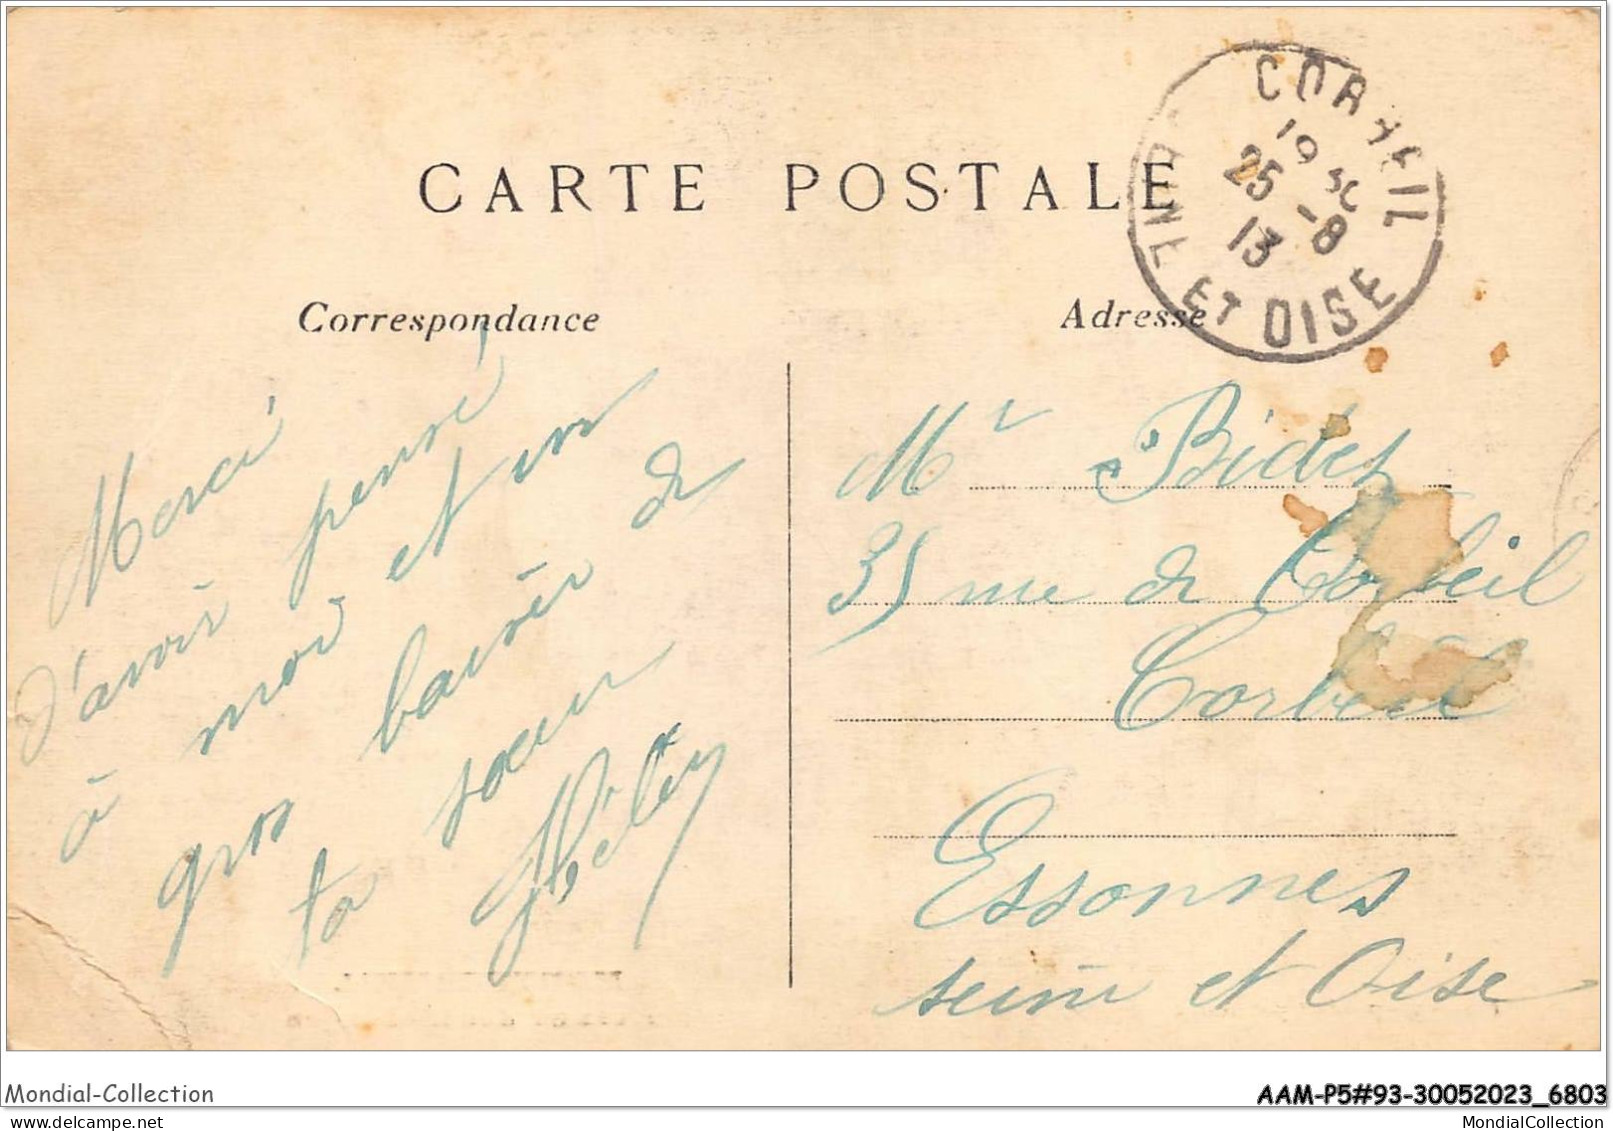 CARTE POSTALE
CORBEIL
19 30
25 -8
13
SEINE ET OISE
Correspondance
Merci
d'avoir pensé
à moi et un
gros baiser de
ta sœur
Adresse
Mr Bidet
35 rue de Corbeil
Corbeil
Essonnes
seine et Oise
Mondial-Collection
AAM-P5#93-30052023_6803
www.delcampe.net
MondialCollection